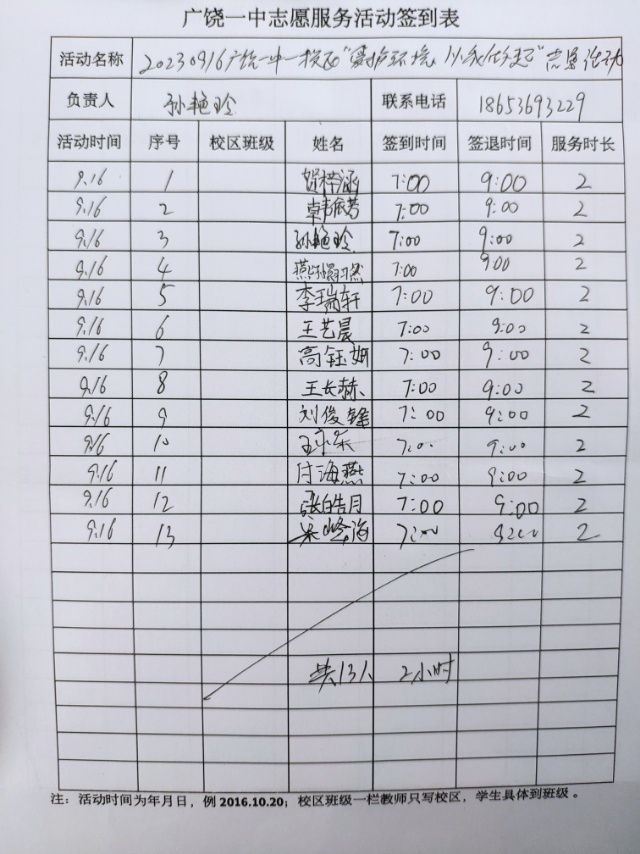 广饶一中志愿服务活动签到表
活动名称 20230916广饶一中一校区“爱护环境，从我做起”志愿活动
负责人 孙艳玲 联系电话 18653693229
活动时间 序号 校区班级 姓名 签到时间 签退时间 服务时长
9.16 1 贺梓涵 7:00 9:00 2
9.16 2 韩振芳 7:00 9:00 2
9.16 3 孙艳玲 7:00 9:00 2
9.16 4 7:00 9:00 2
9.16 5 李瑞轩 7:00 9:00 2
9.16 6 王艺晨 7:00 9:00 2
9.16 7 高钰妍 7:00 9:00 2
9.16 8 王长赫 7:00 9:00 2
9.16 9 刘俊锋 7:00 9:00 2
9.16 10 7:00 9:00 2
9.16 11 付海燕 7:00 9:00 2
9.16 12 张皓月 7:00 9:00 2
9.16 13 7:00 9:00 2
共13人 2小时
注：活动时间为年月日，例 2016.10.20；校区班级一栏教师只写校区，学生具体到班级。